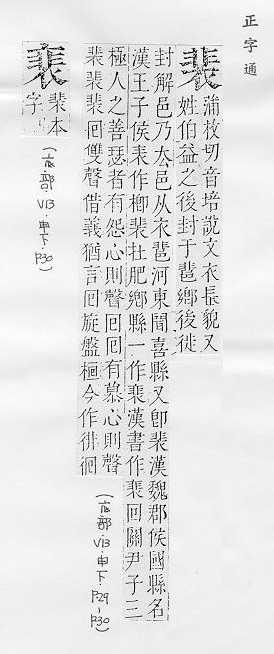 正字通
裴 蒲枚切音培說文衣長貌又
姓伯益之後封于䔹鄉後徙
封解邑乃去邑从衣䔹河東聞喜縣又卽裴漢魏郡侯國縣名
漢王子侯表作𨛬裴壯肥鄉縣一作裵漢書作裵回關尹子三
極人之善瑟者有怨心則聲回回有慕心則聲
裴裴裴回雙聲借義猶言回旋盤桓今作徘徊
(衣部·V13·申下·P29-P30)
裵 裴本
字
(衣部·V13·申下·P30)